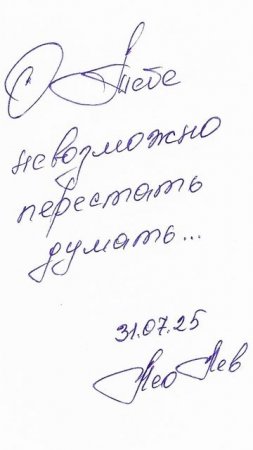 О Тебе
невозможно
перестать
думать...
31.07.25
Лео Лев